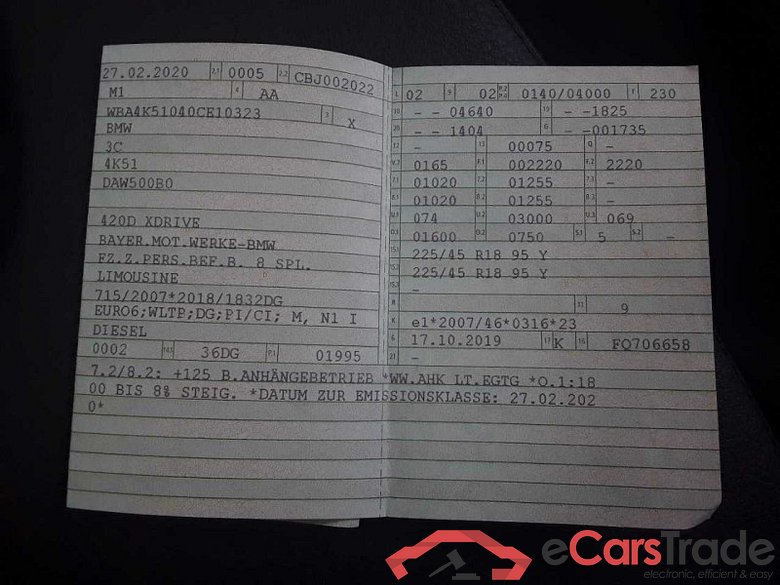 27.02.2020 2.1 0005 2.2 CBJ002022
M1 4 AA
WBA4K51040CE10323 3 X
BMW
3C
4K51
DAW500B0
420D XDRIVE
BAYER.MOT.WERKE-BMW
FZ.Z.PERS.BEF.B. 8 SPL.
LIMOUSINE
715/2007*2018/1832DG
EURO6;WLTP;DG;PI/CI; M, N1 I
DIESEL
0002 36DG P.1 01995
L 02 9 02 P.2 P.4 0140/04000 T 230
18 - - 04640 19 - -1825
20 - - 1404 G - -001735
12 - 13 00075 Q -
V.7 0165 F.1 002220 F.2 2220
7.1 01020 7.2 01255 7.3 -
8.1 01020 8.2 01255 8.3 -
U.1 074 U.2 03000 U.3 069
O.1 01600 O.2 0750 S.1 5 S.2 -
15.1 225/45 R18 95 Y
15.2 225/45 R18 95 Y
15.3 -
R 11 9
K e1*2007/46*0316*23
6 17.10.2019 17 K 16 FQ706658
21 -
7.2/8.2: +125 B.ANHÄNGEBETRIEB *WW.AHK LT.EGTG *O.1:18
00 BIS 8% STEIG. *DATUM ZUR EMISSIONSKLASSE: 27.02.202
0*
eCarsTrade
electronic, efficient & easy